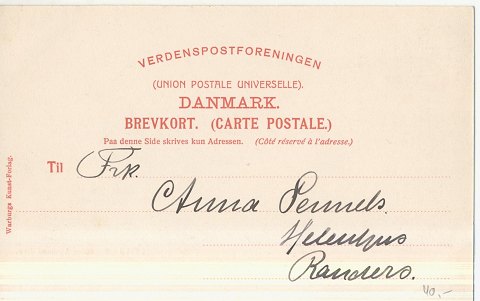 VERDENSPOSTFORENINGEN
(UNION POSTALE UNIVERSELLE).
DANMARK.
BREVKORT. (CARTE POSTALE.)
Paa denne Side skrives kun Adressen. (Côté réservé à l'adresse.)
Til Frk.
Anna
Randers.
40,-
Warburgs Kunst-Forlag.